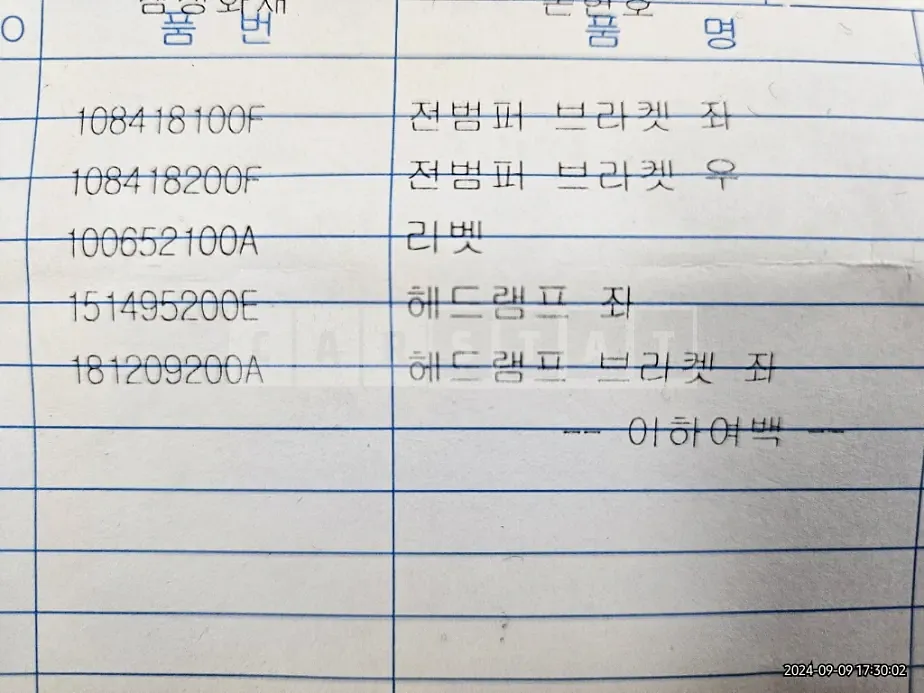 품 번 품 명
108418100F 전범퍼 브라켓 좌
108418200F 전범퍼 브라켓 우
100652100A 리벳
151495200E 헤드램프 좌
181209200A 헤드램프 브라켓 좌
CARSTAT
-- 이하여백 --
2024-09-09 17:30:02